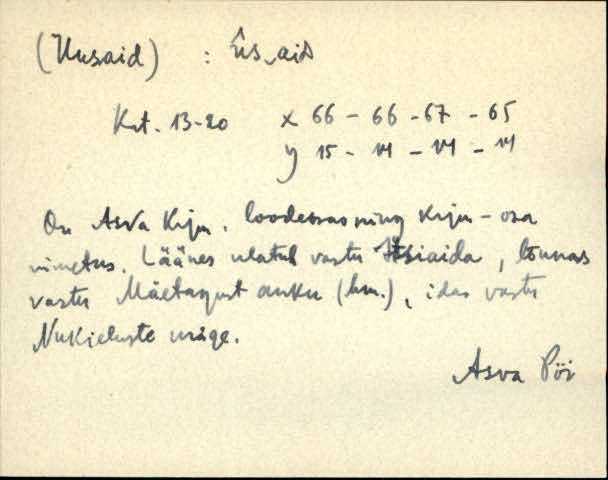 (Uusaid) : ûs͜aid
Kat. 13-20 x 66 - 66 - 67 - 65
y 15 - 14 - 14 - 14
On Asva Kyu. loodessas ning Kyu - osa
nimetus. Läänes ulatub vastu Itsiaida, lõunas
vastu Mäetagust auku (hm.), idas vastu
Nukieluste mäge.
Asva Pöi